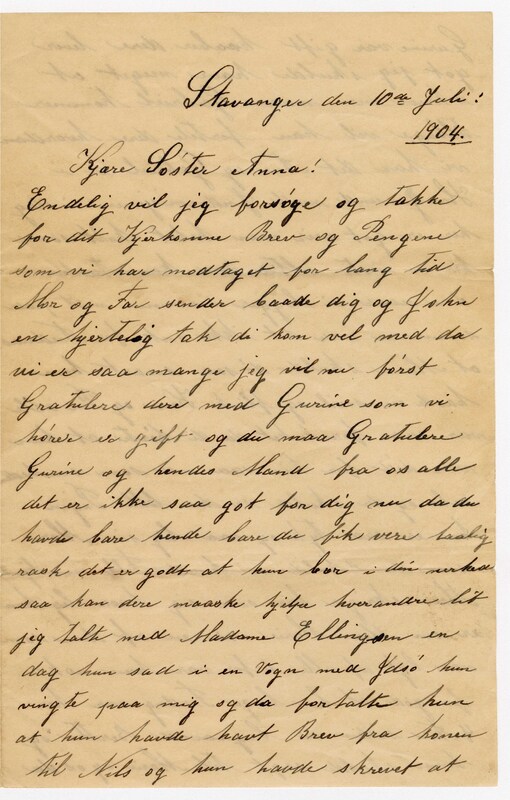 Stavanger den 10de Juli!
1904.
Kjære Söster Anna!
Endelig vil jeg forsöge og takke
for dit Kjerkomne Brev og Pengene
som vi har modtaget for lang tid
Mor og Far sender baade dig og John
en hjertelig tak di kom vel med da
vi er saa mange jeg vil nu först
Gratulere dere med Gurine som vi
hörer er gift og du maa Gratulere
Gurine og hendes Mand fra os alle
det er ikke saa got for dig nu da du
havde bare hende bare du fik vere taalig
rask det er godt at hun bor i din nerhed
saa kan dere maaske hjelpe hverandre lit
jeg talte med Madame Ellingsen en
dag hun sad i en Vogn med Idsö hun
vingte paa mig og da fortalte hun
at hun havde havt Brev fra konen
til Nils og hun havde skrevet at